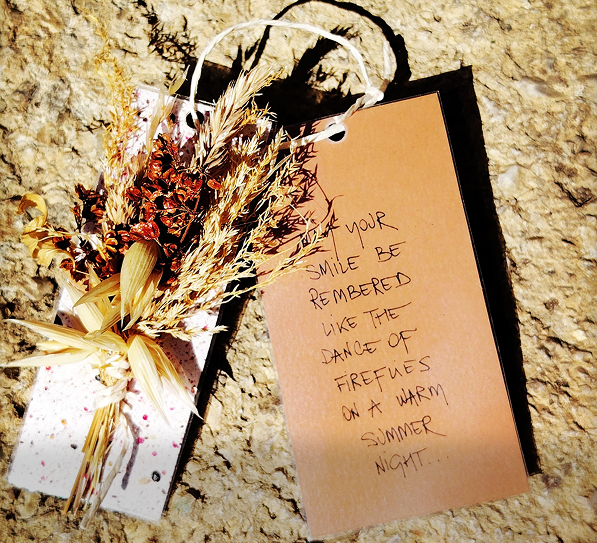 MAY YOUR
SMILE BE
REMBERED
LIKE THE
DANCE OF
FIREFLIES
ON A WARM
SUMMER
NIGHT...